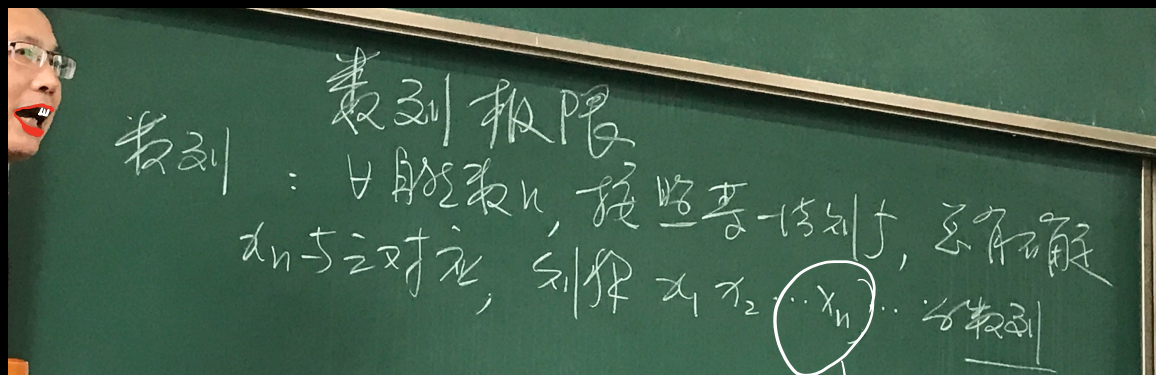 数列极限
数列：∀自然数n，按照某一法则f，总有确定
xn与之对应，则称 x1 x2 … xn … 为数列